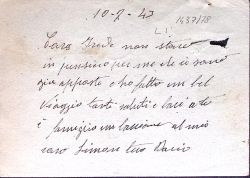 10-7-43
1437/78
Caro Guido non stare
in pensiero per me che ci sono
già apposto e ho fatto un bel
viaggio tanti saluti e baci a te
e famiglia un bacione al mio
caro Simone tuo Dario